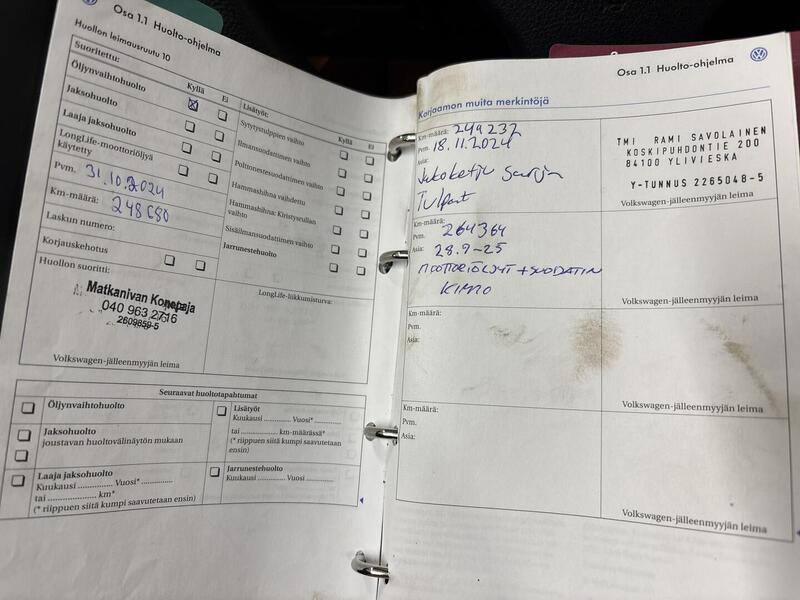 Osa 1.1 Huolto-ohjelma
Huollon leimausruutu 10
Suoritettu:
Kyllä Ei
Öljynvaihtohuolto
Jaksohuolto
Laaja jaksohuolto
LongLife-moottoriöljyä
käytetty
Pvm. 31.10.2024
Km-määrä: 248680
Laskun numero:
Korjauskehotus
Huollon suoritti:
Matkanivan Konepaja
040 963 2716
2609859-5
Volkswagen-jälleenmyyjän leima
Lisätyöt:
Kyllä Ei
Sytytystulppien vaihto
Ilmansuodattimen vaihto
Polttonestesuodattimen vaihto
Hammashihna vaihdettu
Hammashihna: Kiristysrullan
vaihto
Sisäilmansuodattimen vaihto
Jarrunestehuolto
LongLife-liikkumisturva:
Seuraavat huoltotapahtumat
Öljynvaihtohuolto
Jaksohuolto
joustavan huoltovälinäytön mukaan
Laaja jaksohuolto
Kuukausi .............. Vuosi* ..............
tai ..................... km*
(* riippuen siitä kumpi saavutetaan
ensin)
Lisätyöt
Kuukausi .............. Vuosi* ..............
tai ..................... km-määrässä*
(* riippuen siitä kumpi saavutetaan
ensin)
Jarrunestehuolto
Kuukausi .............. Vuosi ..............
Osa 1.1 Huolto-ohjelma
Korjaamon muita merkintöjä
Km-määrä: 249237
Pvm. 18.11.2024
Asia:
Jakoketju Sarja
Tulpat
TMI RAMI SAVOLAINEN
KOSKIPUHDONTIE 200
84100 YLIVIESKA
Y-TUNNUS 2265048-5
Volkswagen-jälleenmyyjän leima
Km-määrä:
Pvm. 264364
Asia: 28.9-25
MOOTTORIÖLJYT + SUODATIN
KIMO
Volkswagen-jälleenmyyjän leima
Km-määrä:
Pvm.
Asia:
Volkswagen-jälleenmyyjän leima
Km-määrä:
Pvm.
Asia:
Volkswagen-jälleenmyyjän leima